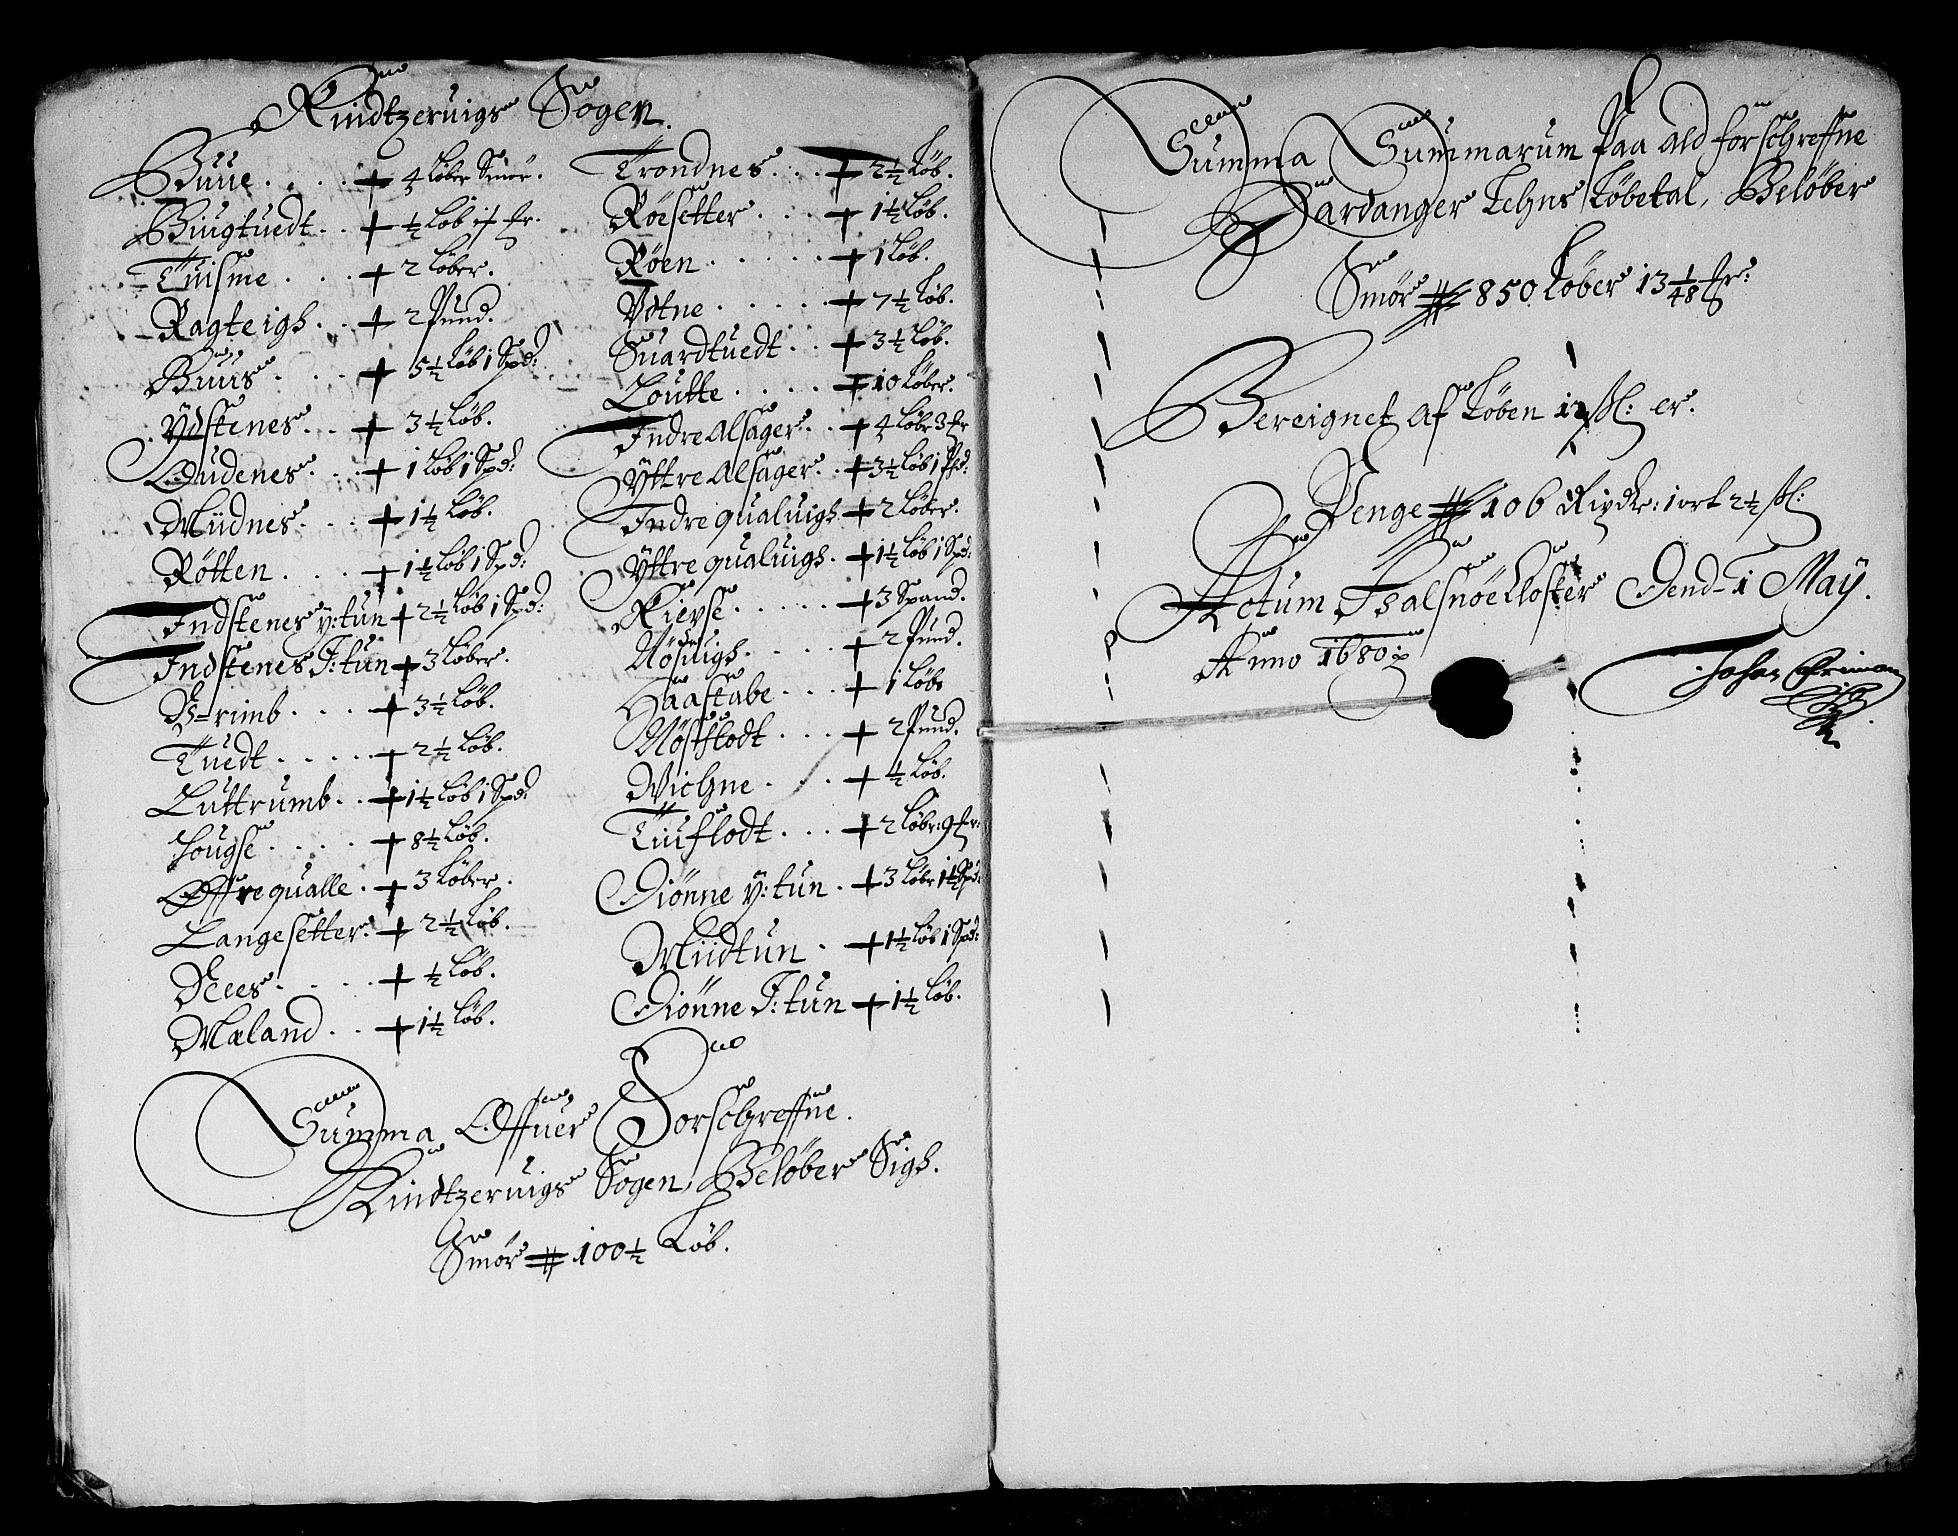 Kindtzeruigs Sogen.
Buue.... + 4 Løber Smör.
Biugtuedt.. + ½ Løb
Tuisme... + 2 Løber.
Ragteigh.. + 2 Pund.
Buus... + 5½ Løb 1 Spd:
Ydstenes.. + 3½ Løb.
Oudenes... + 1 Løb 1 Spd:
Miidnes... + 1½ Løb.
Røtten.... + 1½ Løb 1 Spd:
Indstenes ÿ: tun + 2½ Løb 1 Spd:
Indstenes I: tun + 3 Løber.
+ 3½ Løb.
Tuedt..... + 2½ Løb.
Luttrumb.. + 1½ Løb 1 Spd:
Hougse.... + 8½ Løb.
Offrequalle. + 3 Løber.
Langesetter. + 2½ Løb.
+ ½ Løb.
Mæland.. + 1½ Løb.
Trondnes... + 2½ Løb.
Röesetter.... + 1½ Løb.
Röen...... + 1 Løb.
Ydtne..... + 7½ Løb.
Suardtuedt.. + 3½ Løb.
Loutte..... + 10 Løber.
Indre Alsager.. + 4 Løbr 3 fr
Yttre Alsager.. + 3½ Løb 1 Pd:
Indre qualuigh. + 2 Løber.
Yttre qualuigh. + 1½ Løb 1 Spd:
Kierse..... + 3 Spand.
Nösuigh..... + 2 Pund.
Haastabe... + 1 Løb
Nöstflodt... + 2 Pund.
Wichne.... + ½ Løb.
Tuuflodt... + 2 Løbr: 9 fr:
Diönne ÿ: tun. + 3 Løbr 1½ Spd:
Miidtun. + 1½ Løb 1 Spd:
Diönne I: tun + 1½ Løb.
Summa Offuer Forschreffne.
Kindtzeruigs Sogen, Beløber Sigh.
Smör # 100½ Løb.
Summa Summarum Paa ald forschreffne
Hardanger Lehns Løbetal, Beløber
Smör # 850 Løber 13 1/48 fr:
Bereignet af Løben 12 sl: er.
Penge # 106 Rixdlr: 1 ort 2½ sl:
Actum Halsnöe Closter Dend 1 Maÿ.
Anno 1680:
Johan